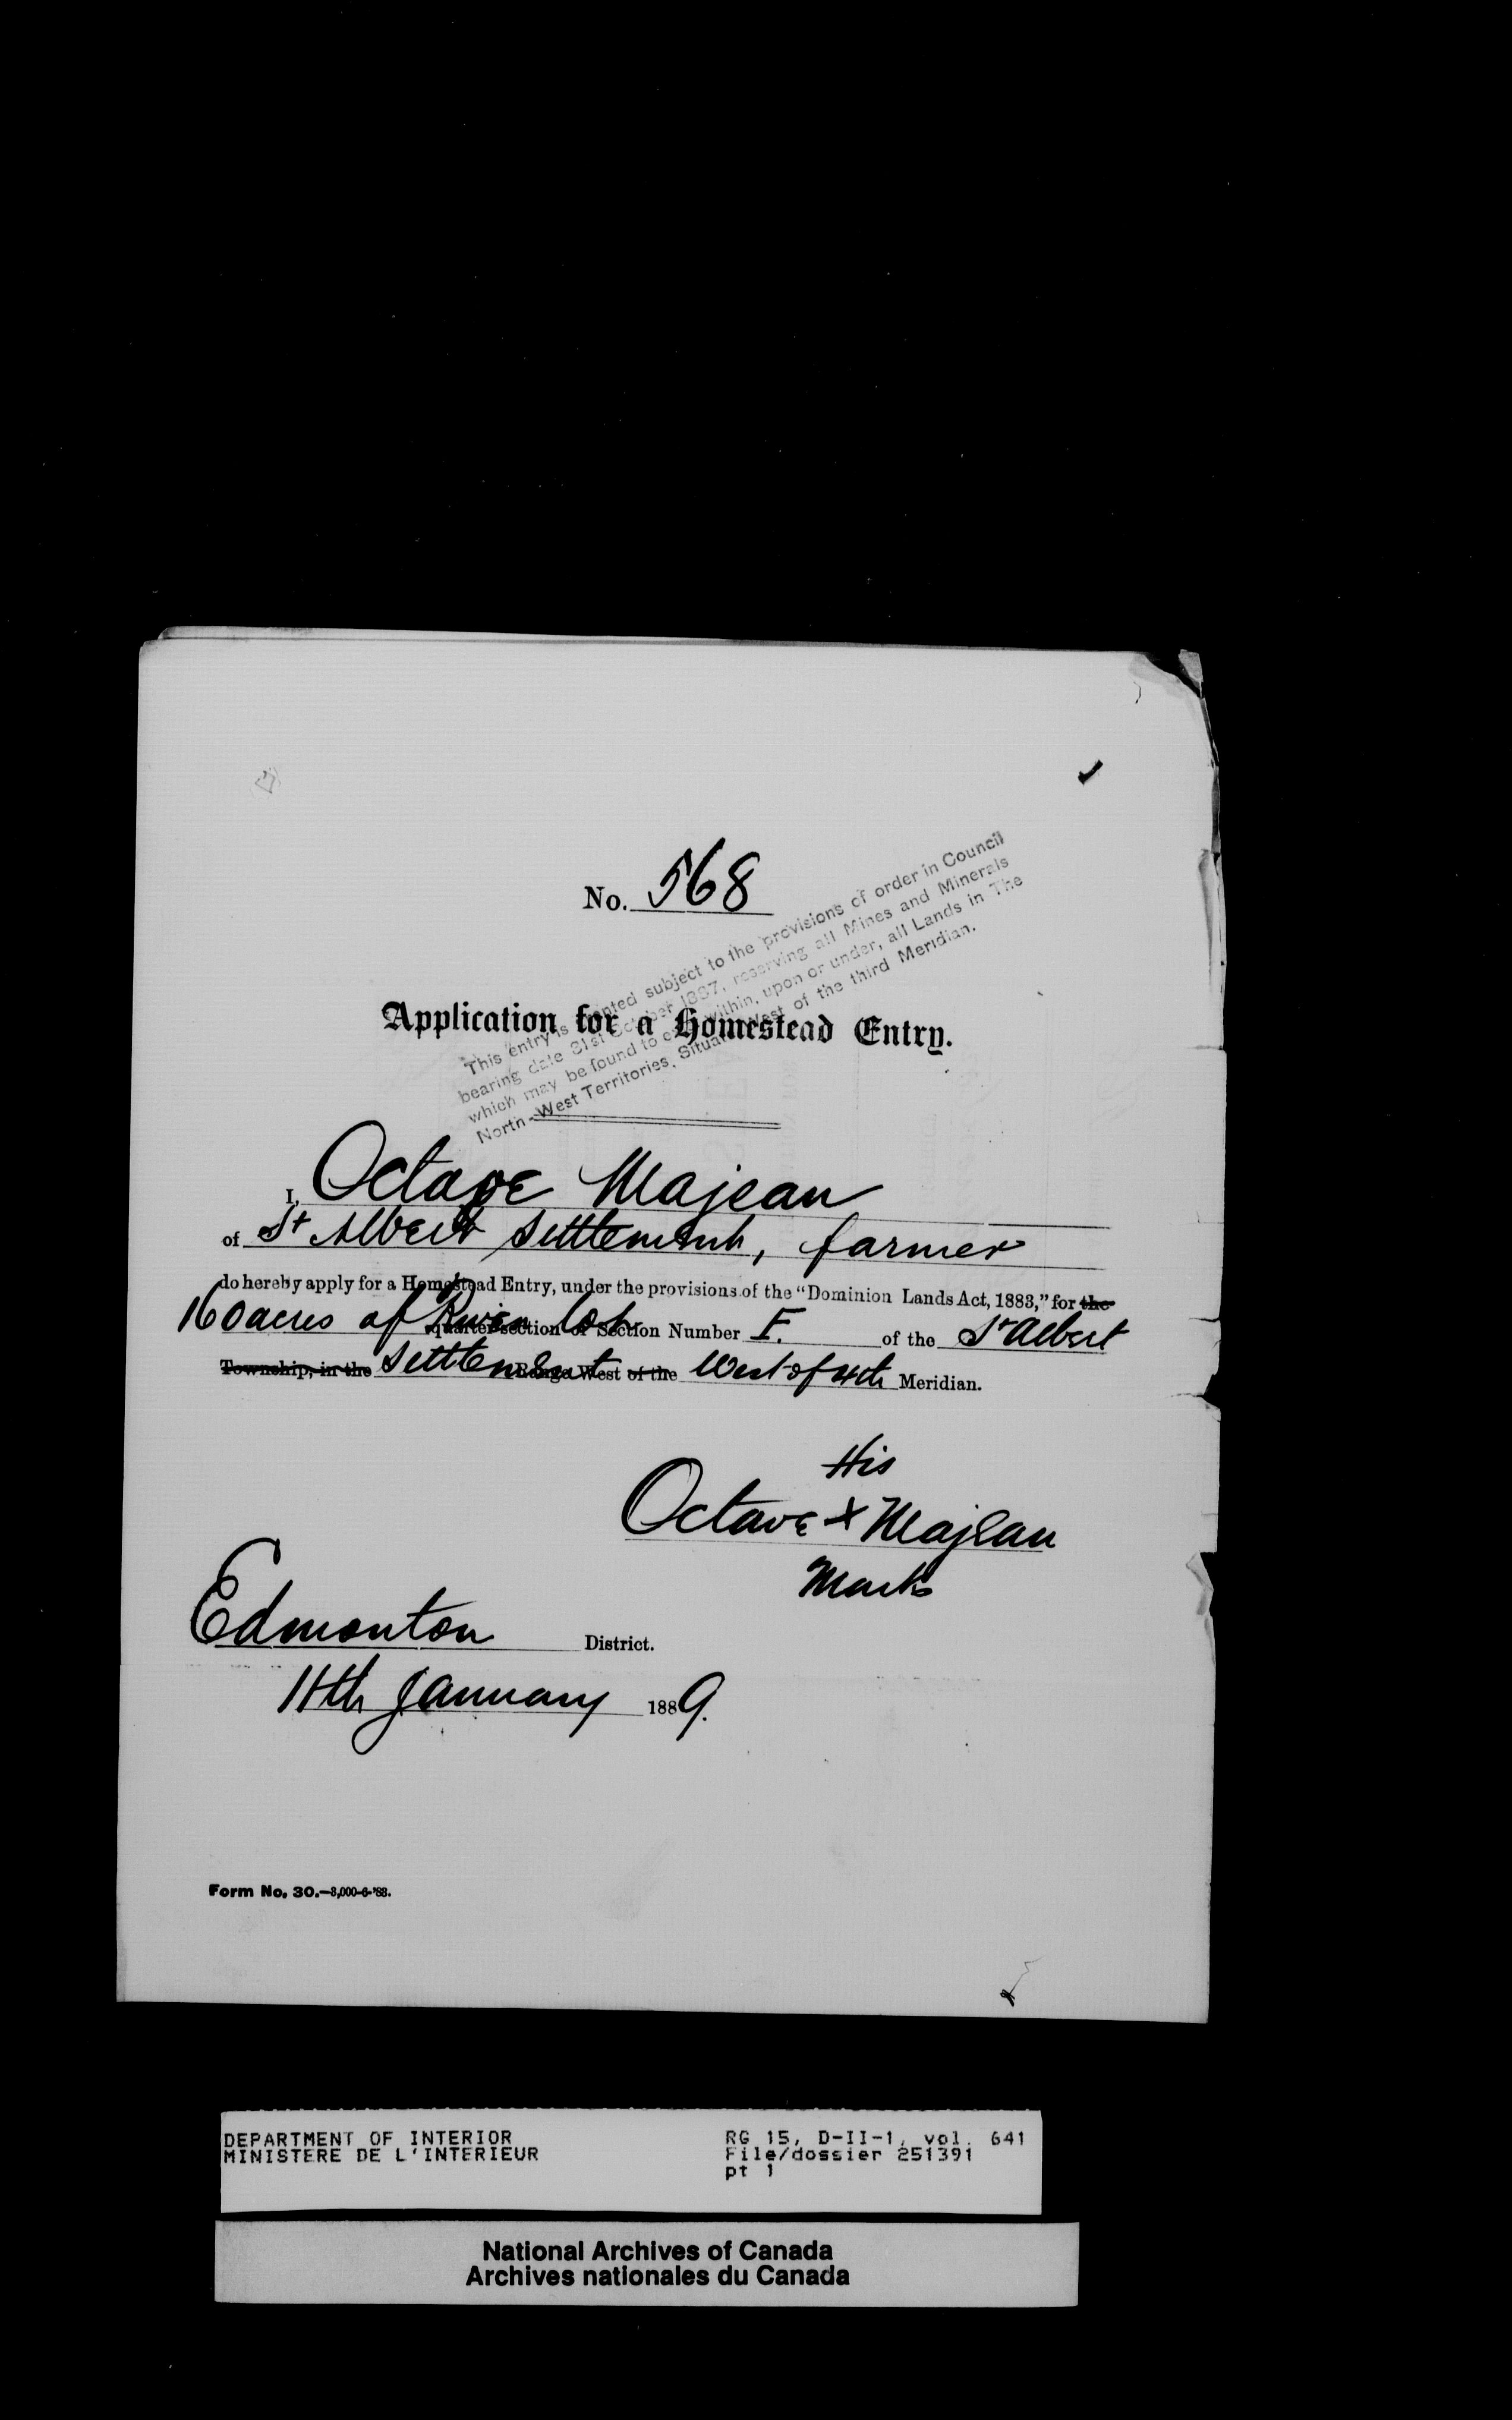 No. 568
This entry is granted subject to the provisions of order in Council
bearing date 31st October 1887, reserving all Mines and Minerals
which may be found to exist within, upon or under, all Lands in The
North-West Territories, Situate West of the third Meridian.
Application for a Homestead Entry.
I, Octave Majeau
of St Albert Settlement, farmer
do hereby apply for a Homestead Entry, under the provisions of the "Dominion Lands Act, 1883," for the
160 acres of River Lot quarter section of Section Number F. of the St Albert
Township, in the Settlement Range West of the West of 4th Meridian.
His
Octave X Majeau
Mark
Edmonton District.
11th January 1889.
Form No. 30.—3,000-6-'88.
DEPARTMENT OF INTERIOR RG 15, D-II-1, vol. 641
MINISTERE DE L'INTERIEUR File/dossier 251391
pt 1
National Archives of Canada
Archives nationales du Canada